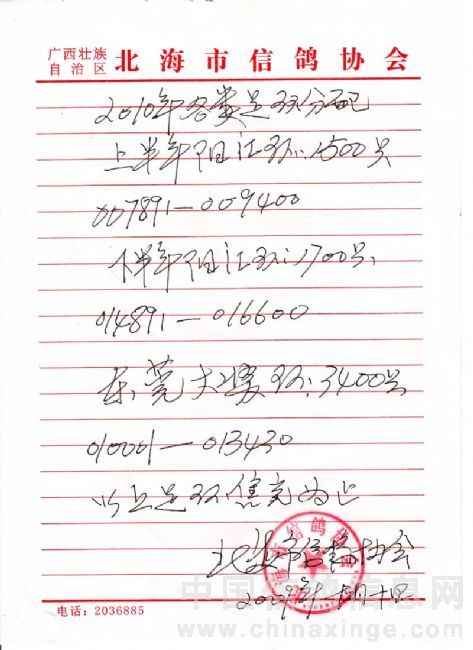 广西壮族
自治区
北海市信鸽协会
2010年各类足环分配
上半年阳江环:1500只
007891—009400
下半年阳江环:1700只
014891—016600
东莞大奖环:3400只
010001—013430
以上足环售完为止
北海市信鸽协会
2009年 月十日
电话:2036885
中国信鸽信息网
www.chinaxinge.com